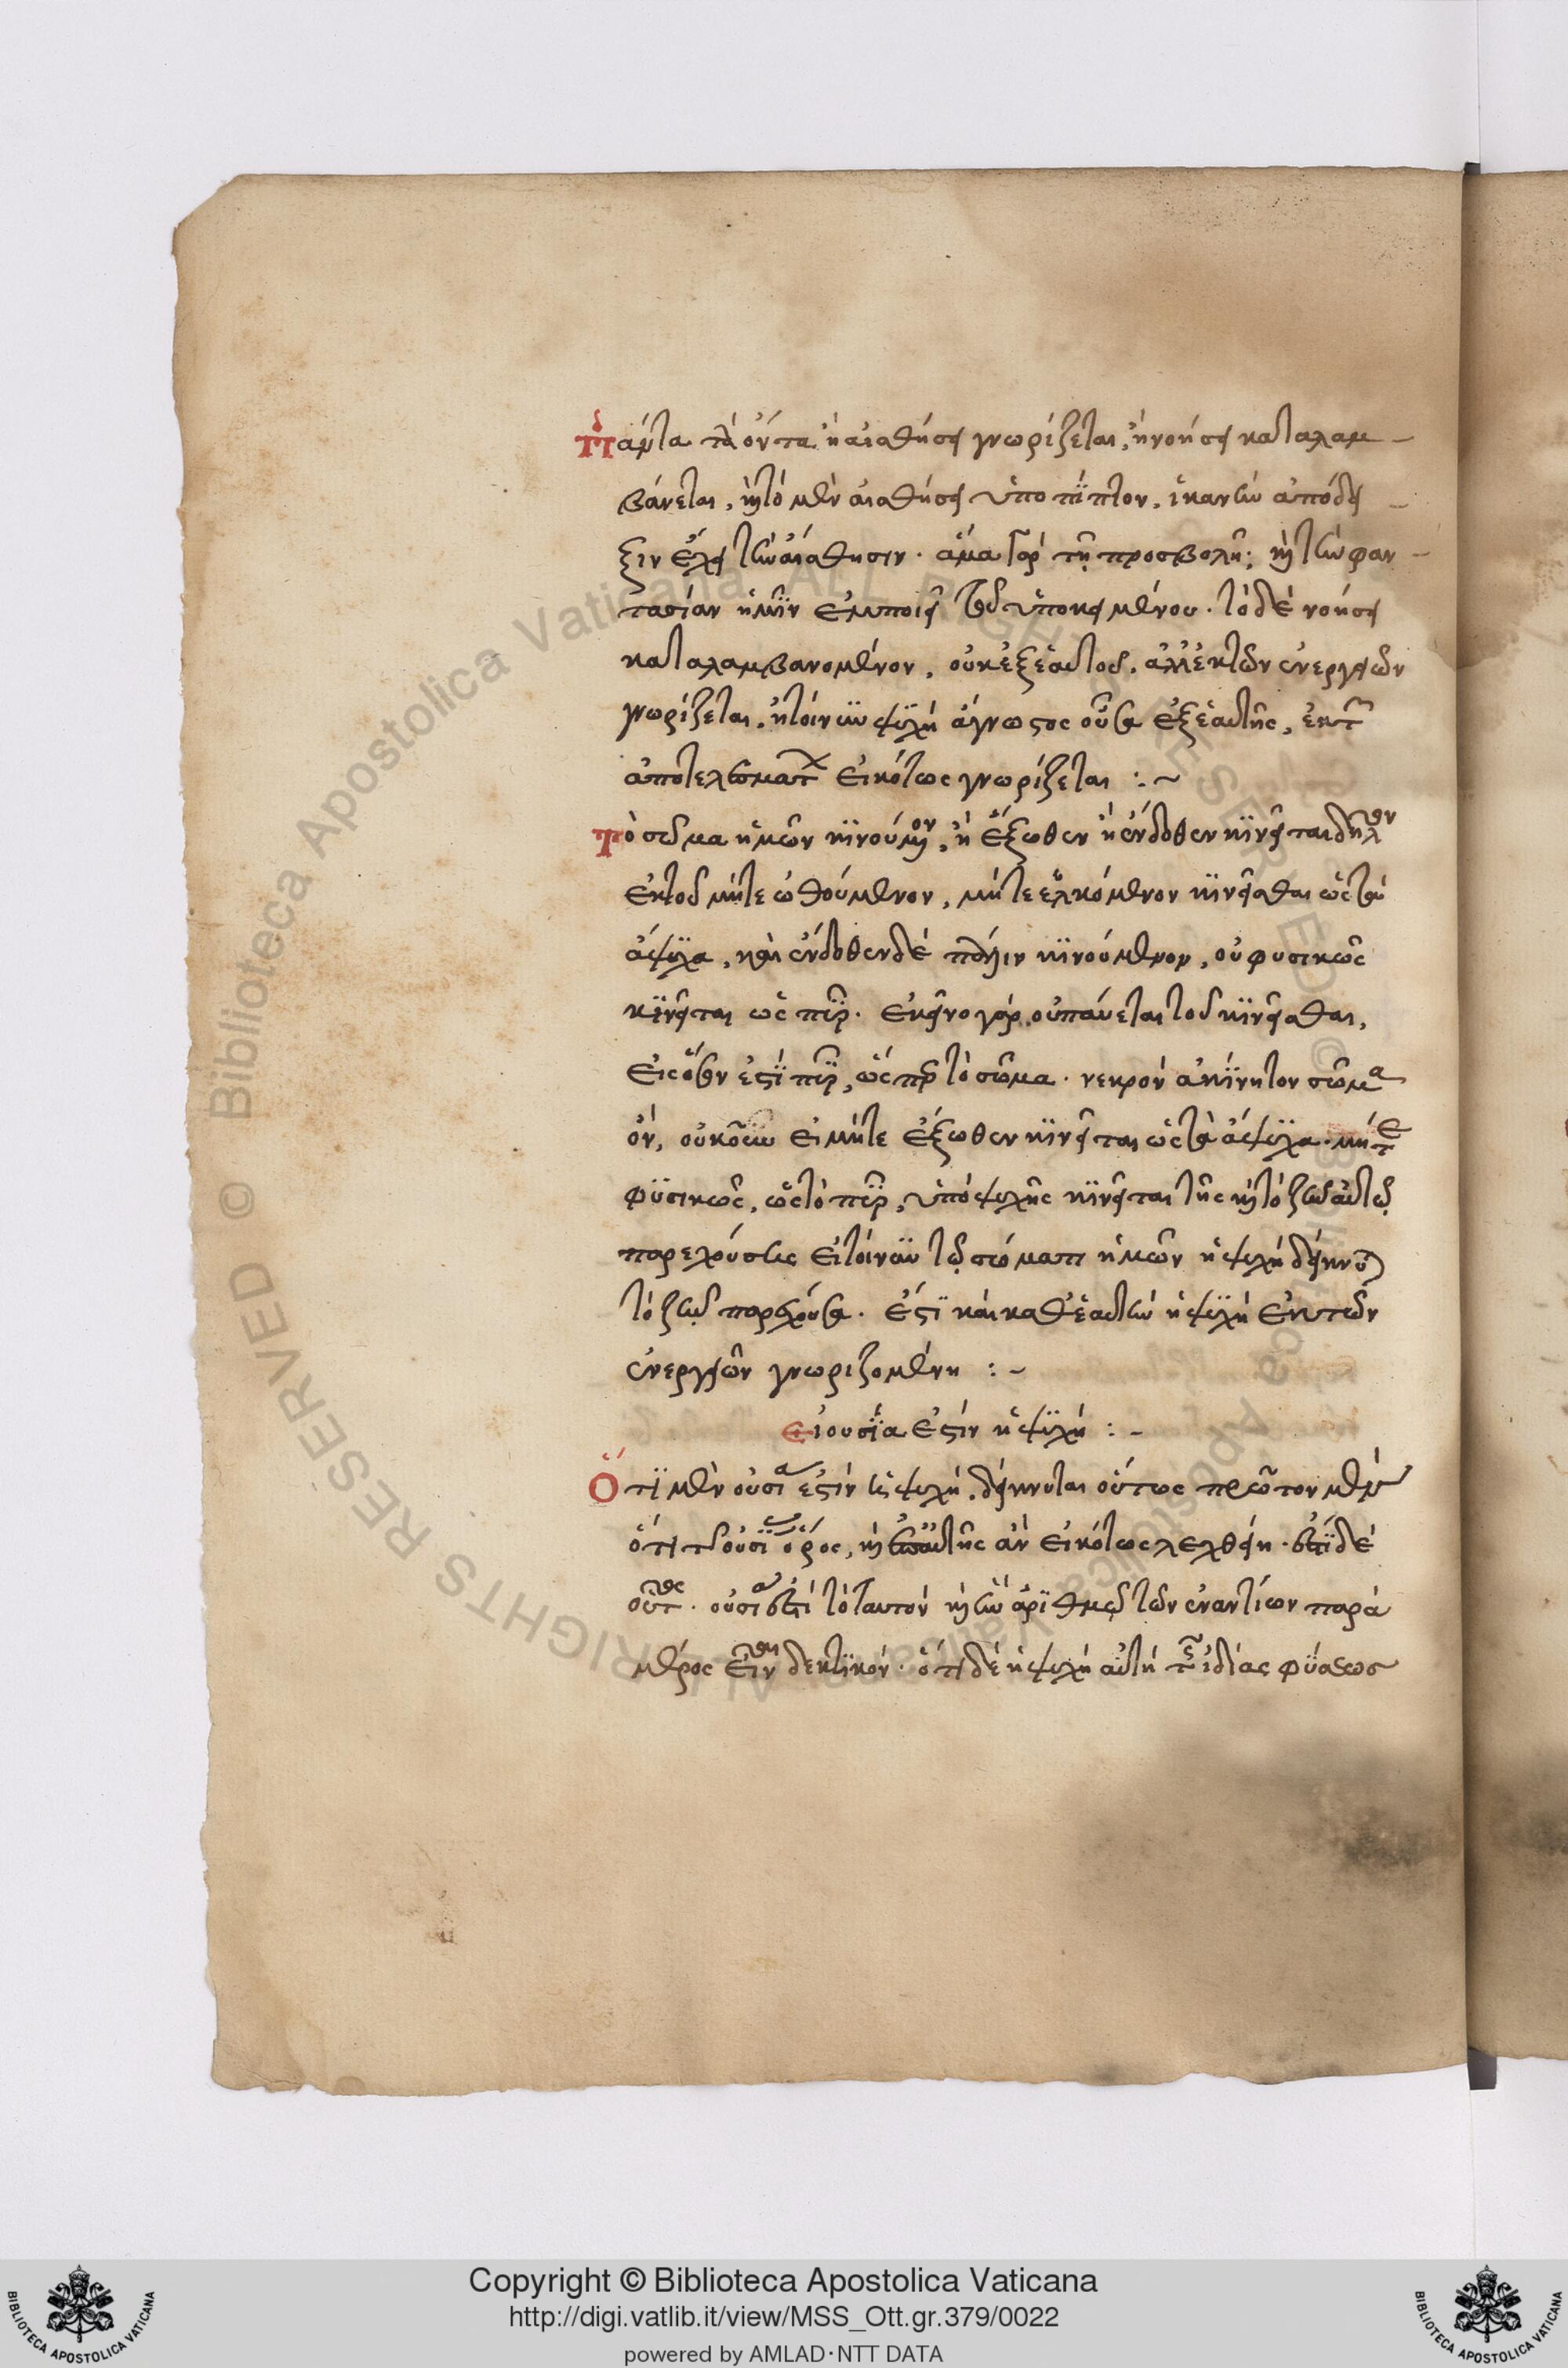 πάντα τὰ ὄντα ἢ αἰσθήσει γνωρίζεται, ἢ νοήσει καταλαμ-
βάνεται, καὶ τὸ μὲν αἰσθήσει ὑποπίπτον, ἱκανὴν ἀπόδει-
ξιν ἔχει τὴν αἴσθησιν· ἅμα γὰρ τῇ προσβολῇ, καὶ τὴν φαν-
τασίαν ἡμῖν ἐμποιεῖ τοῦ ὑποκειμένου· τὸ δὲ νοήσει
καταλαμβανομένον, οὐκ ἐξ ἑαυτοῦ, ἀλλ' ἐκ τῶν ἐνεργειῶν
γνωρίζεται, ἡ τοίνυν ψυχὴ ἄγνωστος οὖσα ἐξ ἑαυτῆς, ἐκ τῶν
ἀποτελεσμάτων εἰκότως γνωρίζεται :~
τὸ σῶμα ἡμῶν κινούμενον, ἢ ἔξωθεν ἢ ἔνδοθεν κινεῖται δῆλον
ἐκ τοῦ μήτε ὠθούμενον, μήτε ἑλκόμενον κινεῖσθαι ὡς τὰ
ἄψυχα, καὶ ἔνδοθεν δὲ πάλιν κινούμενον, οὐ φυσικῶς
κινεῖται ὡς πῦρ· ἐκεῖνο γὰρ οὐ παύεται τοῦ κινεῖσθαι,
εἰς ὅσον ἐστὶ πῦρ, ὥσπερ τὸ σῶμα· νεκρὸν ἀκίνητον σῶμα
ὄν, οὐκοῦν εἰ μήτε ἔξωθεν κινεῖται ὡς τὰ ἄψυχα· μήτε
φυσικῶς, ὡς τὸ πῦρ, ὑπὸ ψυχῆς κινεῖται τῆς καὶ τὸ ζῆν αὐτῷ
παρεχούσης εἰ τοίνυν τῷ σώματι ἡμῶν ἡ ψυχὴ δείκνυται
τὸ ζῆν παρέχουσα· ἔστι καὶ καθ' ἑαυτὴν ἡ ψυχὴ ἐκ τῶν
ἐνεργειῶν γνωριζομένη :~
εἰ οὐσία ἐστὶν ἡ ψυχή :-
ὅτι μὲν οὐσία ἐστὶν ἡ ψυχή, δείκνυται οὕτως πρῶτον μὲν
ὅτι τῆς οὐσίας ὅρος, καὶ ἐπ' αὐτῆς ἂν εἰκότως λεχθείη· ἐστὶ δὲ
οὗτος· οὐσία ἐστὶ τὸ ταυτὸν καὶ ἓν ἀριθμῷ τῶν ἐναντίων παρὰ
μέρος εἶναι δεκτικόν· ὅτι δὲ ἡ ψυχὴ αὐτὴ τῆς ἰδίας φύσεως
Copyright © Biblioteca Apostolica Vaticana
http://digi.vatlib.it/view/MSS_Ott.gr.379/0022
powered by AMLAD·NTT DATA